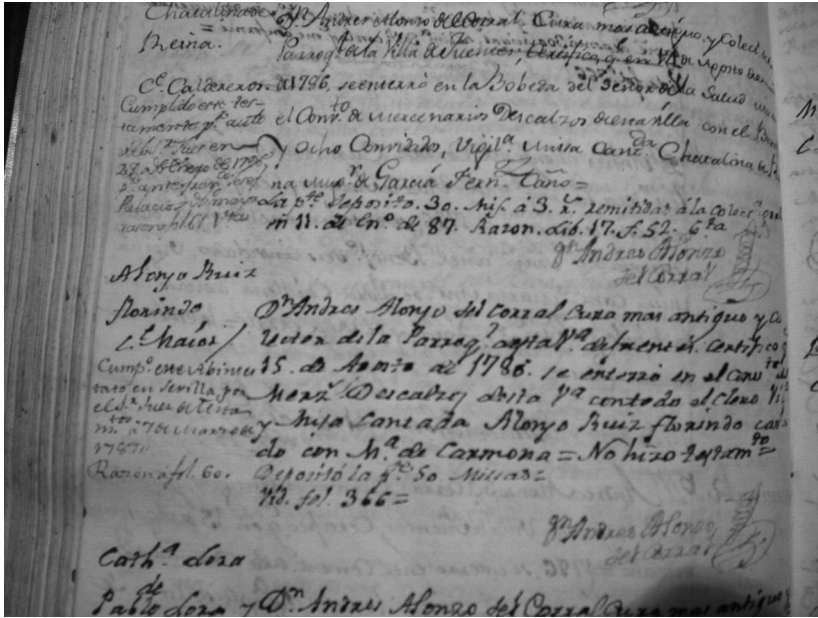 Chatalina de
Reina.
C.e Caldereron.
Cumplido este tes-
tamento p.r ante
en
28 de En.o de 1796
Palacios
Dn. Andres Alonzo del Corral Cura mas antiguo, y Colect
Parroq.l de la Villa de Fuentes, Certifico, q. en 14 de Agosto
de 1786, se enterró en la Bobeda del Señor de la Salud
el Conv.to de Mercenarios Descalzos de esta Villa con el
y ocho Convidos, Vigil.a Missa Cant.da Chatalina de Rei
na Mug.r de Garcia Fern.z Caño =
La p.te Deposito. 30. Mis. á 3. r.s remitidas á la Colec.n
en 11. de En.o de 87. Razon. Lib. 17. f. 52. 6.ta
Dn. Andres Alonzo
del Corral
Alonzo Ruiz
florindo
C.e Maior
Cump.o este Abintes
tato en Sevilla por
el S.r Juez de Testa
m.tos á 7 de Marzo de
1787.
Razon á fol. 60.
Dn. Andres Alonzo del Corral Cura mas antiguo y Co
lector de la Parroq.l de esta V.a de fuentes. Certifico q
15. de Agosto de 1786. se enterró en el Conv.to de
Merz.s Descalzos desta V.a con todo el Clero Vi
y Misa Cantada Alonzo Ruiz florindo casa
do con M.a de Carmona = No hizo testam.to =
Depositó la p.te 50 Missas =
Vid. fol. 366 =
Dn. Andres Alonzo
del Corral
Cath.a Lora
de
Pablo Lora y
Dn. Andres Alonzo del Corral Cura mas antiguo